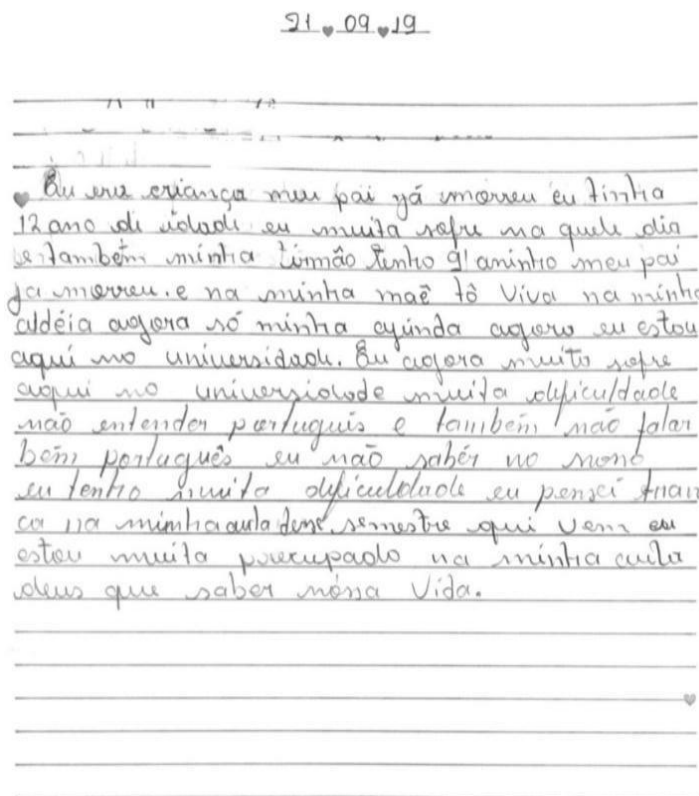 21 09 19
Eu era criança meu pai yá morreu eu tinha
12 ano di idadi eu muita sofre na quele dia
e também minha tirmão tenho 9 aninho meu pai
ja morreu. e na minha maē tô Viva na minha
aldéia agora só minha ayúnda agora eu estou
aqui no universidade. Eu agora muito sofre
aqui no universidade muita dificuldade
não entender portuguis e também não falar
bem português eu não sabér no mono
eu tenho muita dificuldade eu pensei tran
ca na minha aula dese semestre qui vem eu
estou muita preocupado na minha aula
deus que saber nóssa Vida.